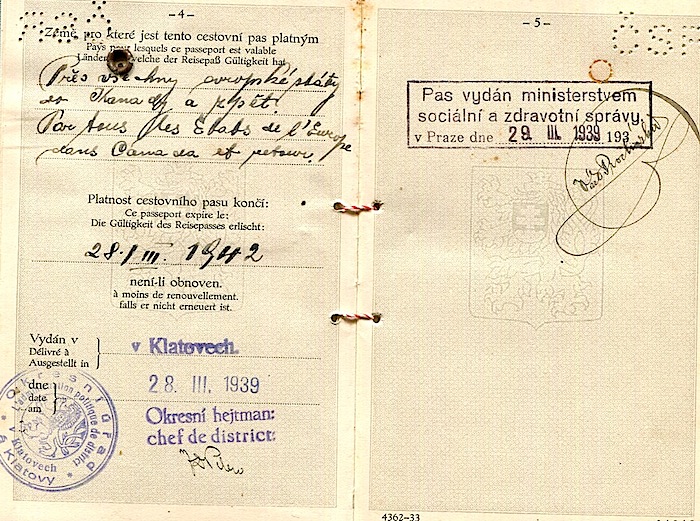 – 4 –
Země, pro které jest tento cestovní pas platným
Pays pour lesquels ce passeport est valable
Länder, welche der Reisepaß Gültigkeit hat
Přes všechny evropské státy
do Kanady a zpět.
Par tous les Etats de l'Europe
dans Canada et retour.
Platnost cestovního pasu končí:
Ce passeport expire le:
Die Gültigkeit des Reisepasses erlischt:
28./III. 1942
není-li obnoven.
à moins de renouvellement.
falls er nicht erneuert ist.
Vydán v
Délivré à
Ausgestellt in
v Klatovech.
dne
date
am
28. III. 1939
Okresní hejtman:
chef de district:
Okresní úřad
v Klatovech
Klatovy
– 5 –
Pas vydán ministerstvem
sociální a zdravotní správy
v Praze dne 29. III. 1939 193
4362–33